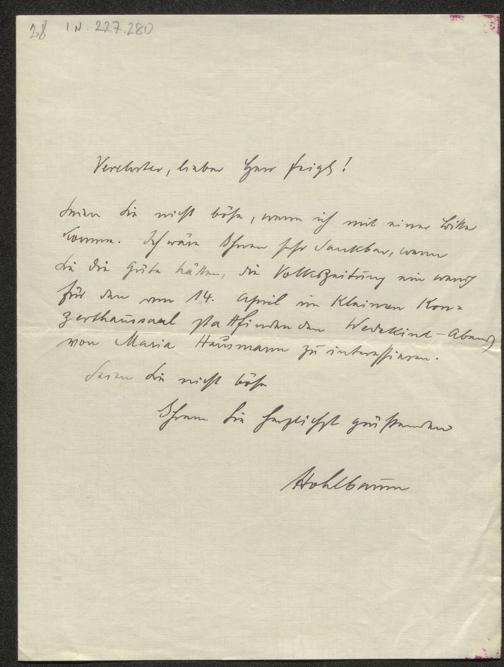 28 I.N. 227.280
Verehrter, lieber Herr Feigl!
Seien Sie nicht böse, wenn ich mit einer Bitte
komme. Ich wäre Ihnen sehr dankbar, wenn
Sie die Güte hätten, die Volkszeitung ein wenig
für den am 14. April im Kleinen Kon-
zerthaussaal stattfindenden Wedekind-Abend
von Maria Hausmann zu interessieren.
Seien Sie nicht böse
Ihrem Sie herzlichst grüßenden
Hohlbaum